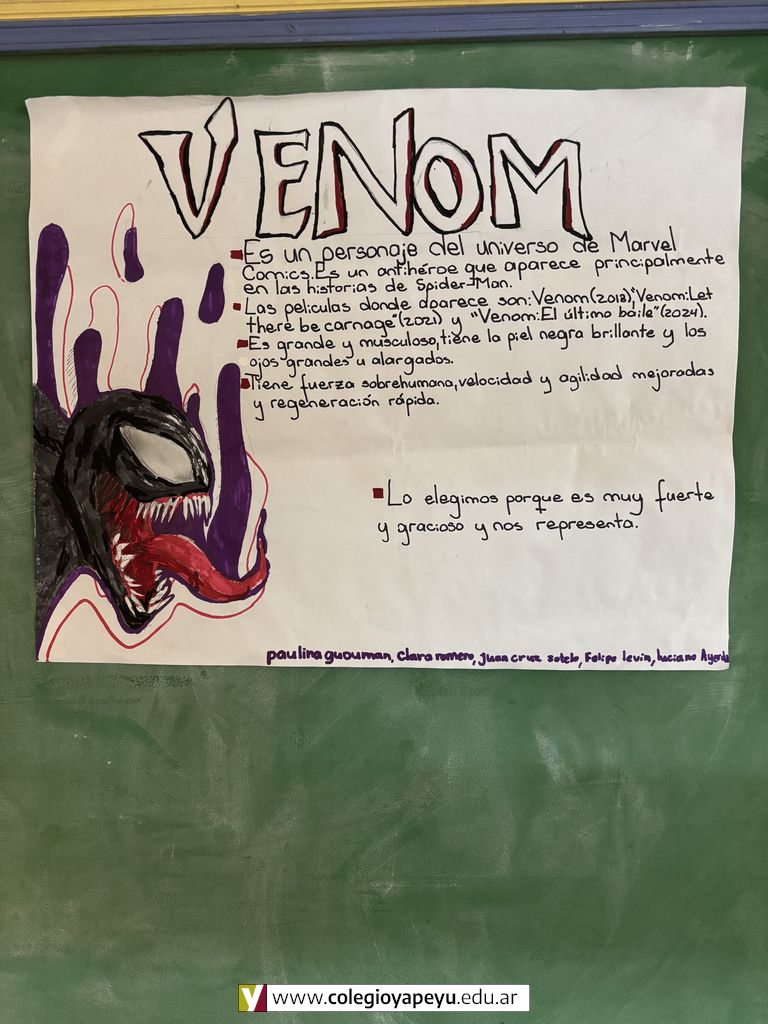 VENOM
Es un personaje del universo de Marvel
Comics.Es un antihéroe que aparece principalmente
en las historias de Spider-Man.
Las peliculas donde aparece son:Venom(2018),"Venom:Let
there be carnage"(2021) y "Venom:El último baile"(2024).
Es grande y musculoso,tiene la piel negra brillante y los
ojos grandes y alargados.
Tiene fuerza sobrehumana,velocidad y agilidad mejoradas
y regeneración rápida.
Lo elegimos porque es muy fuerte
y gracioso y nos representa.
paulina guouman, Clara romero, Juan cruz sotelo, Felipe levin, luciano
y www.colegioyapeyu.edu.ar